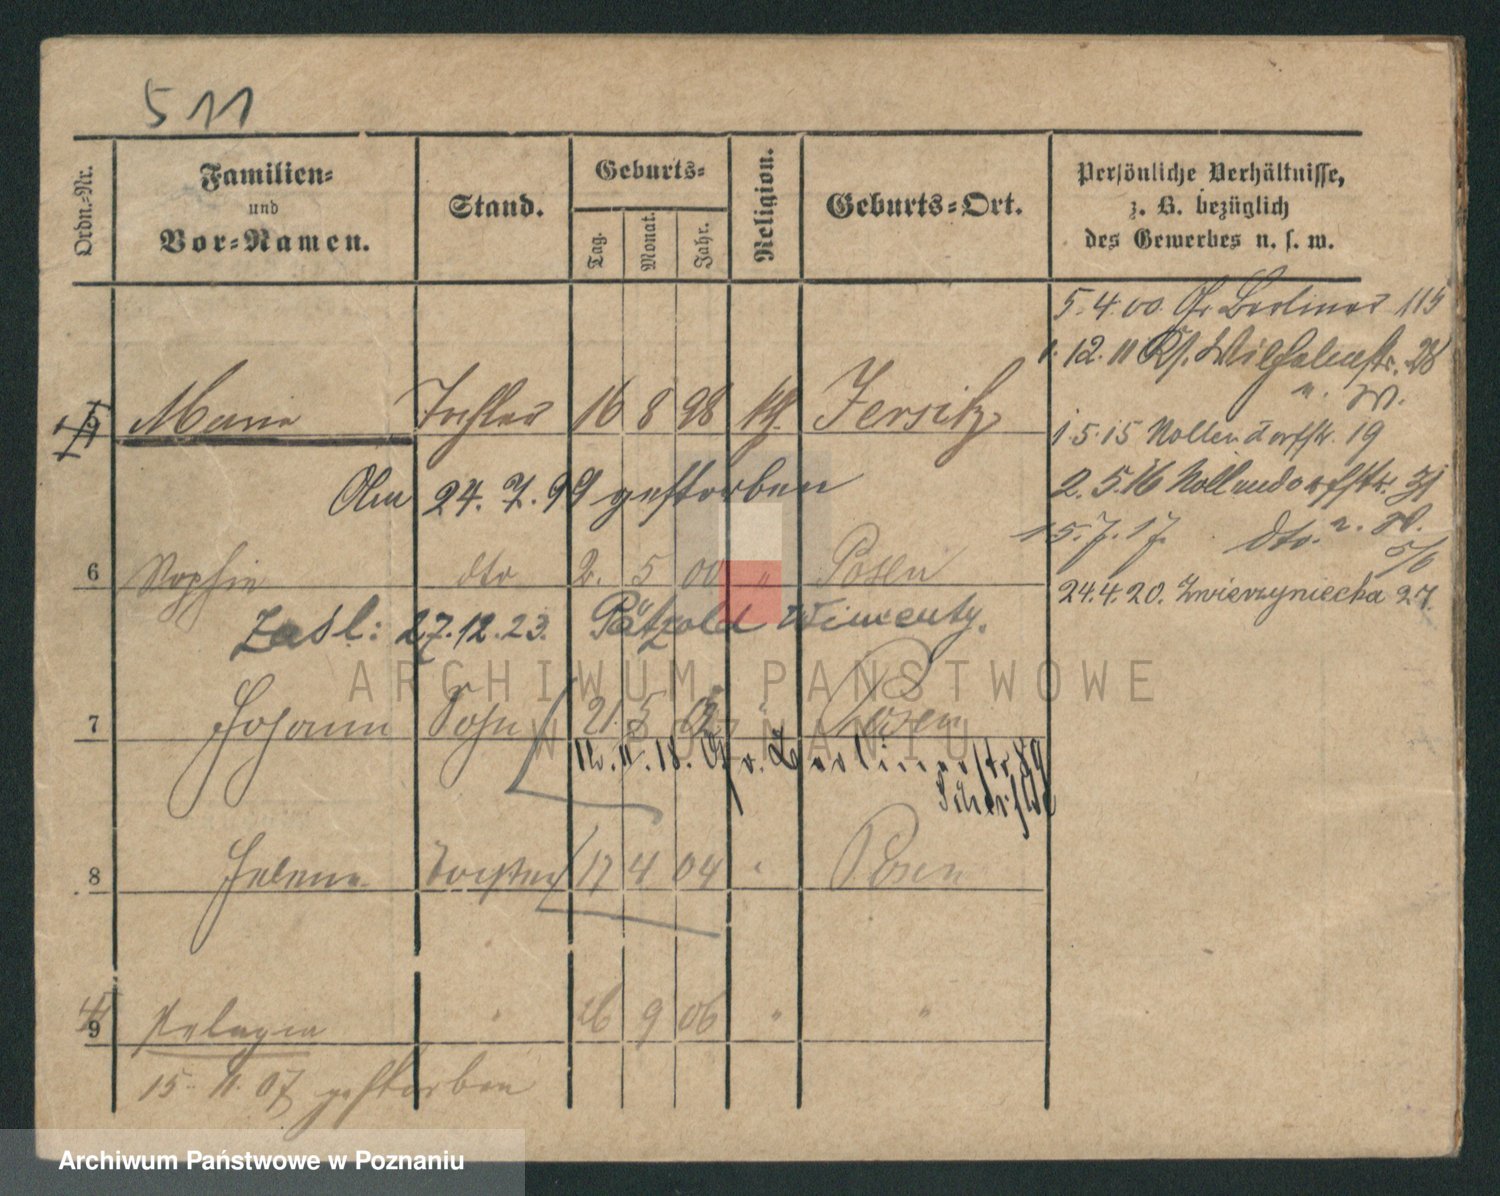 511
Ordn.-Nr.
Familien-
und
Vor-Namen.
Stand.
Geburts-
Tag. Monat. Jahr.
Religion.
Geburts-Ort.
Persönliche Verhältnisse,
z. B. bezüglich
des Gewerbes u. s. w.
5.4.00. Gr. Berliner 115
1.12.11 Ks. Wilhelmstr. 28
1.5.15 Nollendorfstr. 19
2.5.16 Nollendorfstr. 31
15.7.17. dto.
24.4.20. Zwierzyniecka 27.
5 Marie Tochter 16 8 98 kth. Jersitz
Am 24.7.99 gestorben
6 Sophie dto 2. 5 00 " Posen
Zaśl: 27.12.23. Pätzold Wincenty.
7 Johann Sohn 21. 5 02 " Posen
18. Gr. Berlinerstr 89
8 Helene Tochter 17 4 04 " Posen
9 Pelagia " 26 9 06 " "
15. 11. 07 gestorben
ARCHIWUM PAŃSTWOWE
W POZNANIU
Archiwum Państwowe w Poznaniu